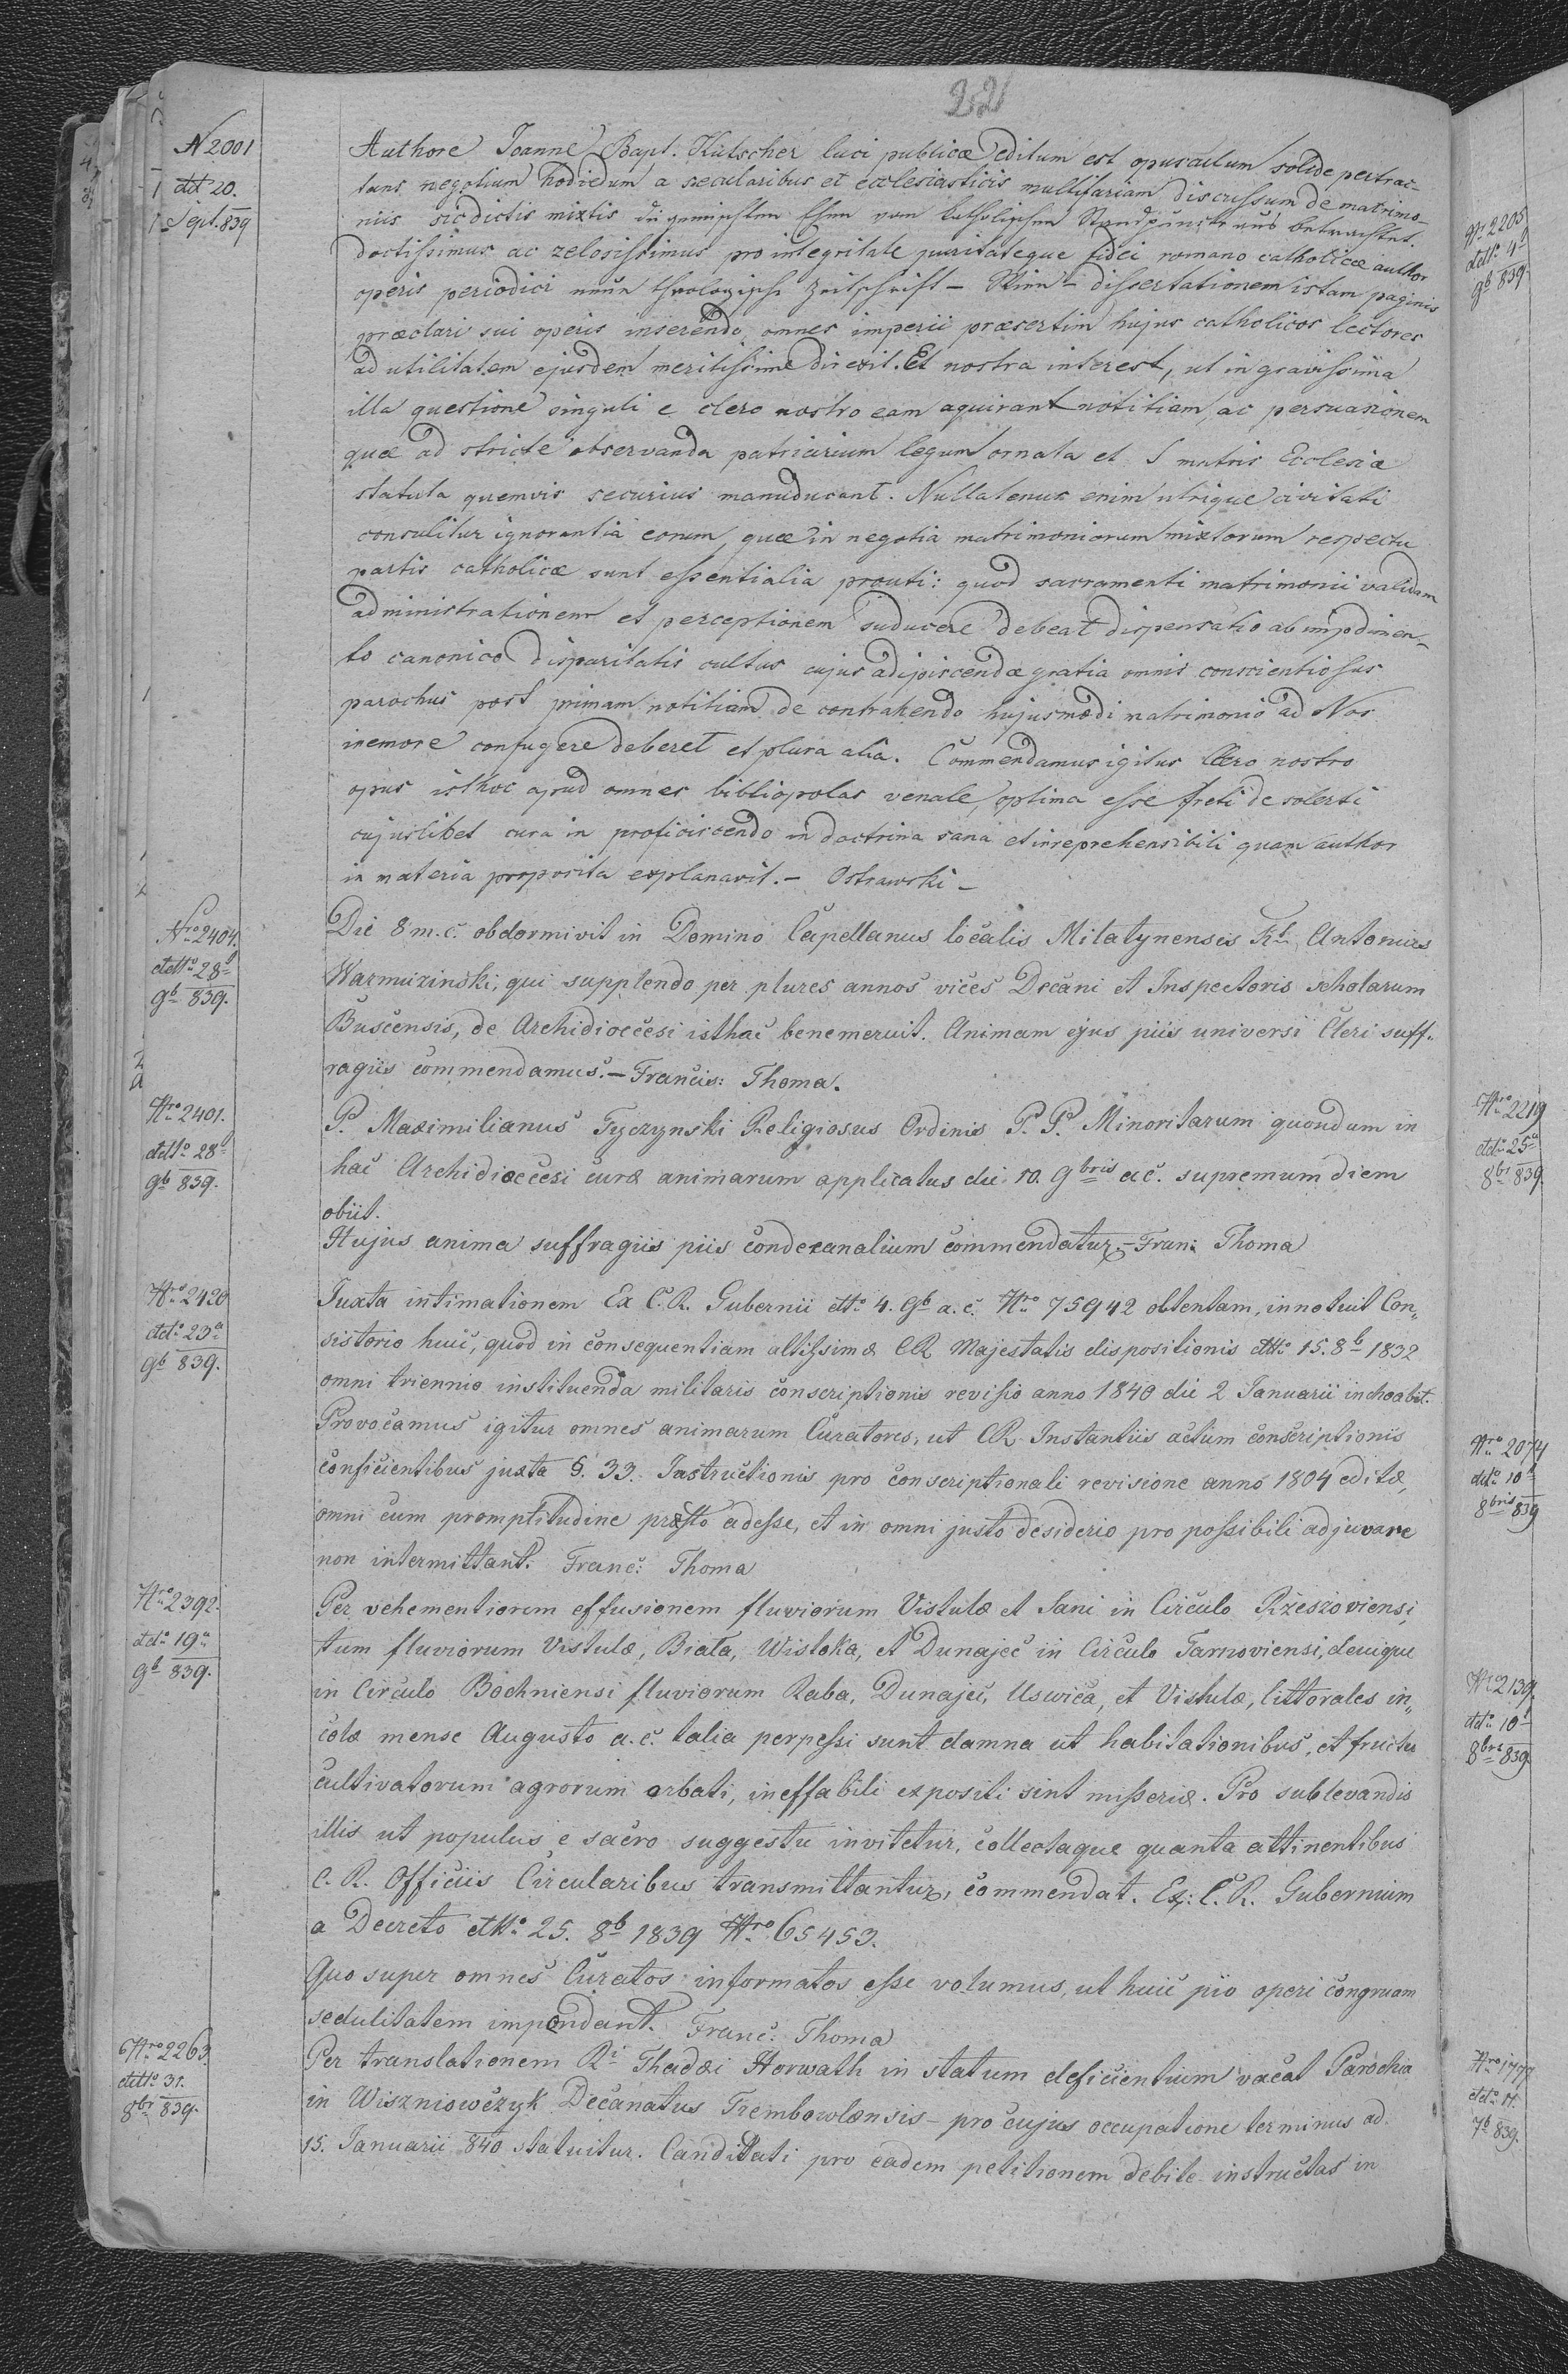 221
N 2001
dtt 20.
Sept. 839
Authore Joanne Bapt. Kutscher luci publicæ editum est opusculum solide pertrac-
tans negotium hodiedum a secularibus et ecclesiasticis multifariam discussum de matrimo-
niis sic dictis mixtis die gemischten Ehen vom katholischen Standpuncte aus betrachtet.
doctissimus ac zelosissimus pro integritate puritateque fidei romano catholicæ author
operis periodici neue theologische Zeitschrift – Wien – dissertationem istam paginis
præclari sui operis inserendo, omnes imperii præsertim hujus catholicos lectores
ad utilitatem ejusdem meritissime direxit. Et nostra interest, ut in gravissima
illa questione singuli e clero nostro eam aquirant notitiam, ac persuasionem
quæ ad stricte observanda patriarium legum ornata et S matris Ecclesiæ
statuta quemvis securius manuducant. Nullatenus enim utrique civitati
consulitur ignorantia eorum, quæ in negotia matrimoniorum mixtorum respectu
partis catholicæ sunt essentialia prouti: quod sacramenti matrimonii validam
administrationem et perceptionem suducere debeat dispensatio ab impdimen-
to canonico disparitatis cultus cujus adipiscendæ gratia omnis conscientiosus
parochus post primam notitiam de contrahendo hujusmodi matrimonio ad Nos
inemore confugere deberet et plura alia. Commendamus igitur Clero nostro
opus isthoc apud omnes bibliopolas venale, optima esse freti de solerti
cujuslibet cura in proficiscendo in doctrina sana et irreprehensibili quam author
in materia proposita explanavit. – Ostrawski –
Nro 2404.
ddtto 28a
9b 839.
Die 8 m.c. obdormivit in Domino Capellanus localis Milatynensis Rd. Antonius
Warmuzinski, qui supplendo per plures annos vices Decani et Inspectoris scholarum
Buscensis, de Archidiœcesi isthac benemeruit. Animam ejus piis universi Cleri suff-
ragiis commendamus. – Francis: Thoma.
Nro 2401.
ddtto 28a
9b 839.
P. Maximilianus Tyczynski Religiosus Ordinis P. P. Minoritarum quondum in
hac Archidiœcesi curæ animarum applicatus die 10. 9bris a c. supremum diem
obiit.
Hujus anima suffragiis piis condecanalium commendatur. – Fran: Thoma
Nro 2420
ddto 23a
9b 839.
Juxta intimationem Ex C. R. Gubernii dtto 4. 9b a. c. Nro 75942 obtentam, innotuit Con„
sistorio huic, quod in consequentiam altissimæ CR Majestatis dispositionis dtto 15. 8b 1832
omni triennio instituenda militaris conscriptionis revisio anno 1840 die 2 Januarii inchoabit.
Provocamus igitur omnes animarum Curatores, ut CR. Instantiis actum conscriptionis
conficientibus juxta §. 33. Instructionis pro conscriptionali revisione anno 1804 editæ,
omni cum promptitudine præsto adesse, et in omni justo desiderio pro possibili adjuvare
non intermittant. Franc: Thoma
Nro 2392.
ddto 19a
9b 839.
Per vehementiorem effusionem fluviorum Vistulæ et Sani in Circulo Rzeszoviensi,
tum fluviorum Vistulæ, Biała, Wisłoka, et Dunajec in Circulo Tarnoviensi, denique
in Circulo Bochniensi fluviorum Raba, Dunajec, Uswica, et Vistulæ, littorales in„
colæ mense Augusto a. c. talia perpessi sunt damna ut habitationibus, et fructu
cultivatorum agrorum orbati, ineffabili expositi sint misseriæ. Pro sublevandis
illis ut populus e sacro suggestu invitetur, collectaque quanta attinentibus
C. R. Officiis Circularibus transmittantur, commendat. Ex: C. R. Gubernium
a Decreto dtto 25. 8b 1839 Nro 65453.
Quo super omnes Curatos informatos esse volumus, ut huic pio operi congruam
sedulitatem impendant. Franc: Thoma
Nro 2263.
ddtto 31.
8br 839.
Per translationem Ri Thadæi Horwath in statum deficientium vacat Parochia
in Wiszniowczyk Decanatus Trembowlænsis – pro cujus occupatione terminus ad
15. Januarii 840 statuitur. Canditati pro eadem petitionem debite instructas in
Nr 2205
ddto 4a
9b 839.
Nro 2219
ddto 25a
8br 839.
Nro 2074
ddto 10a
8bris 839
Nr 2139.
ddto 10a
8bris 839
Nro 1777
ddto 11.
7b 839.